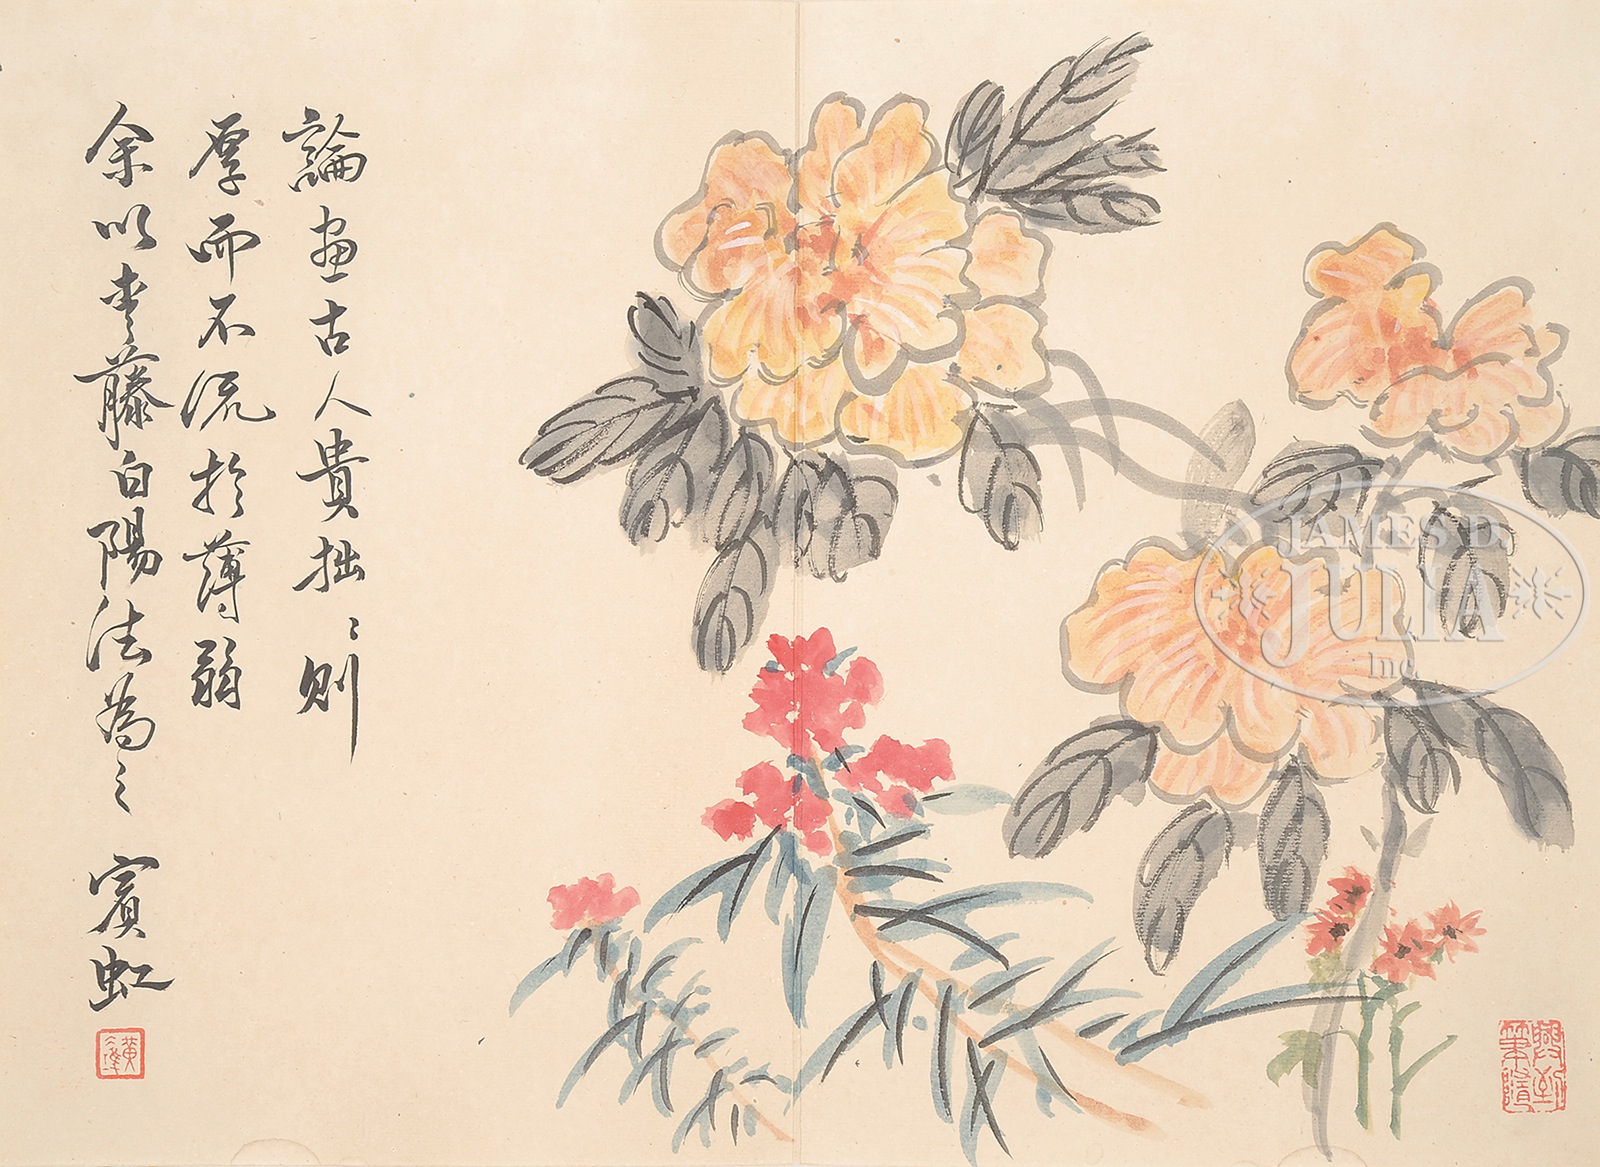 論畫古人貴拙〻則
厚而不流於薄弱
余以青藤白陽法為之 賓虹
興到
筆隨
JAMES D.
JULIA
Inc.